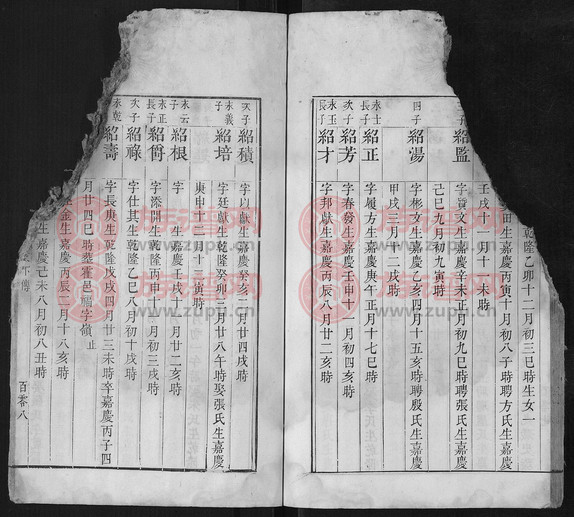 乾隆乙卯十二月初三巳時生女一
田生嘉慶丙寅十月初八子時聘方氏生嘉慶
壬戌十一月十一未時
紹監
字質文生嘉慶辛未正月初九巳時聘張氏生嘉慶
己巳九月初九寅時
四子
紹湯
字彬文生嘉慶乙亥四月十五亥時聘殷氏生嘉慶
甲戌三月十二戌時
永士
次子
紹正
字履方生嘉慶庚午正月十七巳時
次子
紹芳
字春發生嘉慶壬申十一月初四亥時
永玉
長子
紹才
字邦獻生嘉慶丙辰八月廿二亥時
次子
紹積
字以獻生嘉慶癸亥二月廿四戌時
永義
子
紹培
字廷獻生乾隆癸卯三月廿八午時娶張氏生嘉慶
庚申十二月十三寅時
永云
子
紹根
字
生嘉慶壬戌十一月廿二亥時
永正
長子
紹爵
字添開生乾隆丙申十一月初三戌時
次子
紹祿
字仕其生乾隆乙巳八月初十戌時
永乾
紹壽
字長庚生乾隆戊戌四月廿三未時卒嘉慶丙子四
月廿四巳時葬霍邑福字嶺
止
金生嘉慶丙辰二月十八亥時
生嘉慶己未八月初八丑時
下傳
百零八
时光传承网
www.zupu.cn